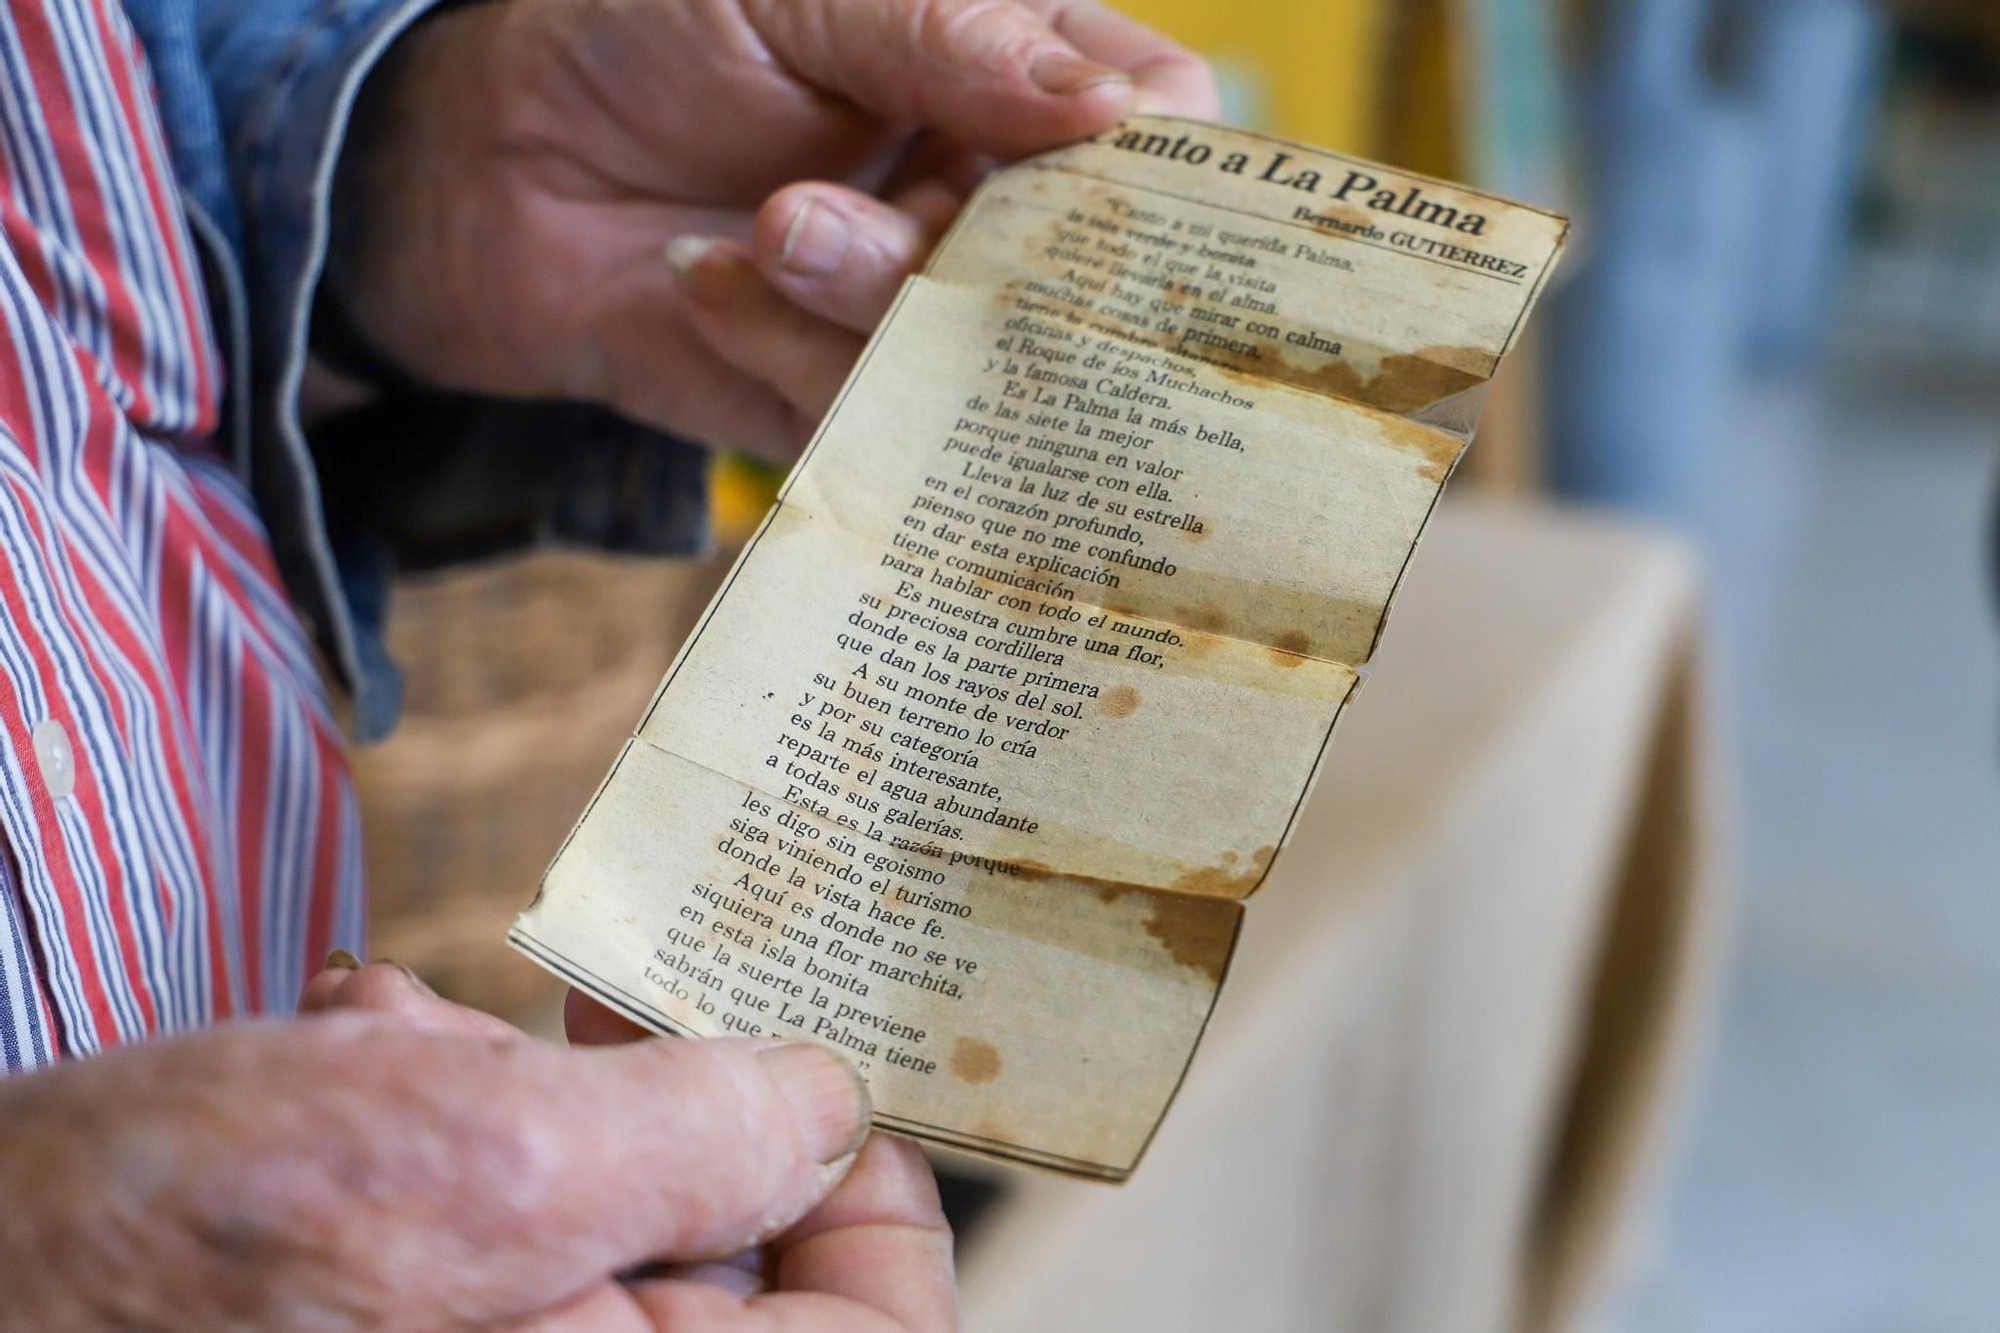 Canto a La Palma
Bernardo GUTIERREZ
"Canto a mi querida Palma,
la isla verde y bonita
que todo el que la visita
quiere llevarla en el alma.
Aquí hay que mirar con calma
muchas cosas de primera,
tiene la cumbre altanera
oficinas y despachos,
el Roque de los Muchachos
y la famosa Caldera.
Es La Palma la más bella,
de las siete la mejor
porque ninguna en valor
puede igualarse con ella.
Lleva la luz de su estrella
en el corazón profundo,
pienso que no me confundo
en dar esta explicación
tiene comunicación
para hablar con todo el mundo.
Es nuestra cumbre una flor,
su preciosa cordillera
donde es la parte primera
que dan los rayos del sol.
A su monte de verdor
su buen terreno lo cría
y por su categoría
es la más interesante,
reparte el agua abundante
a todas sus galerías.
Esta es la razón porque
les digo sin egoismo
siga viniendo el turismo
donde la vista hace fe.
Aquí es donde no se ve
siquiera una flor marchita,
en esta isla bonita
que la suerte la previene
sabrán que La Palma tiene
todo lo que
".